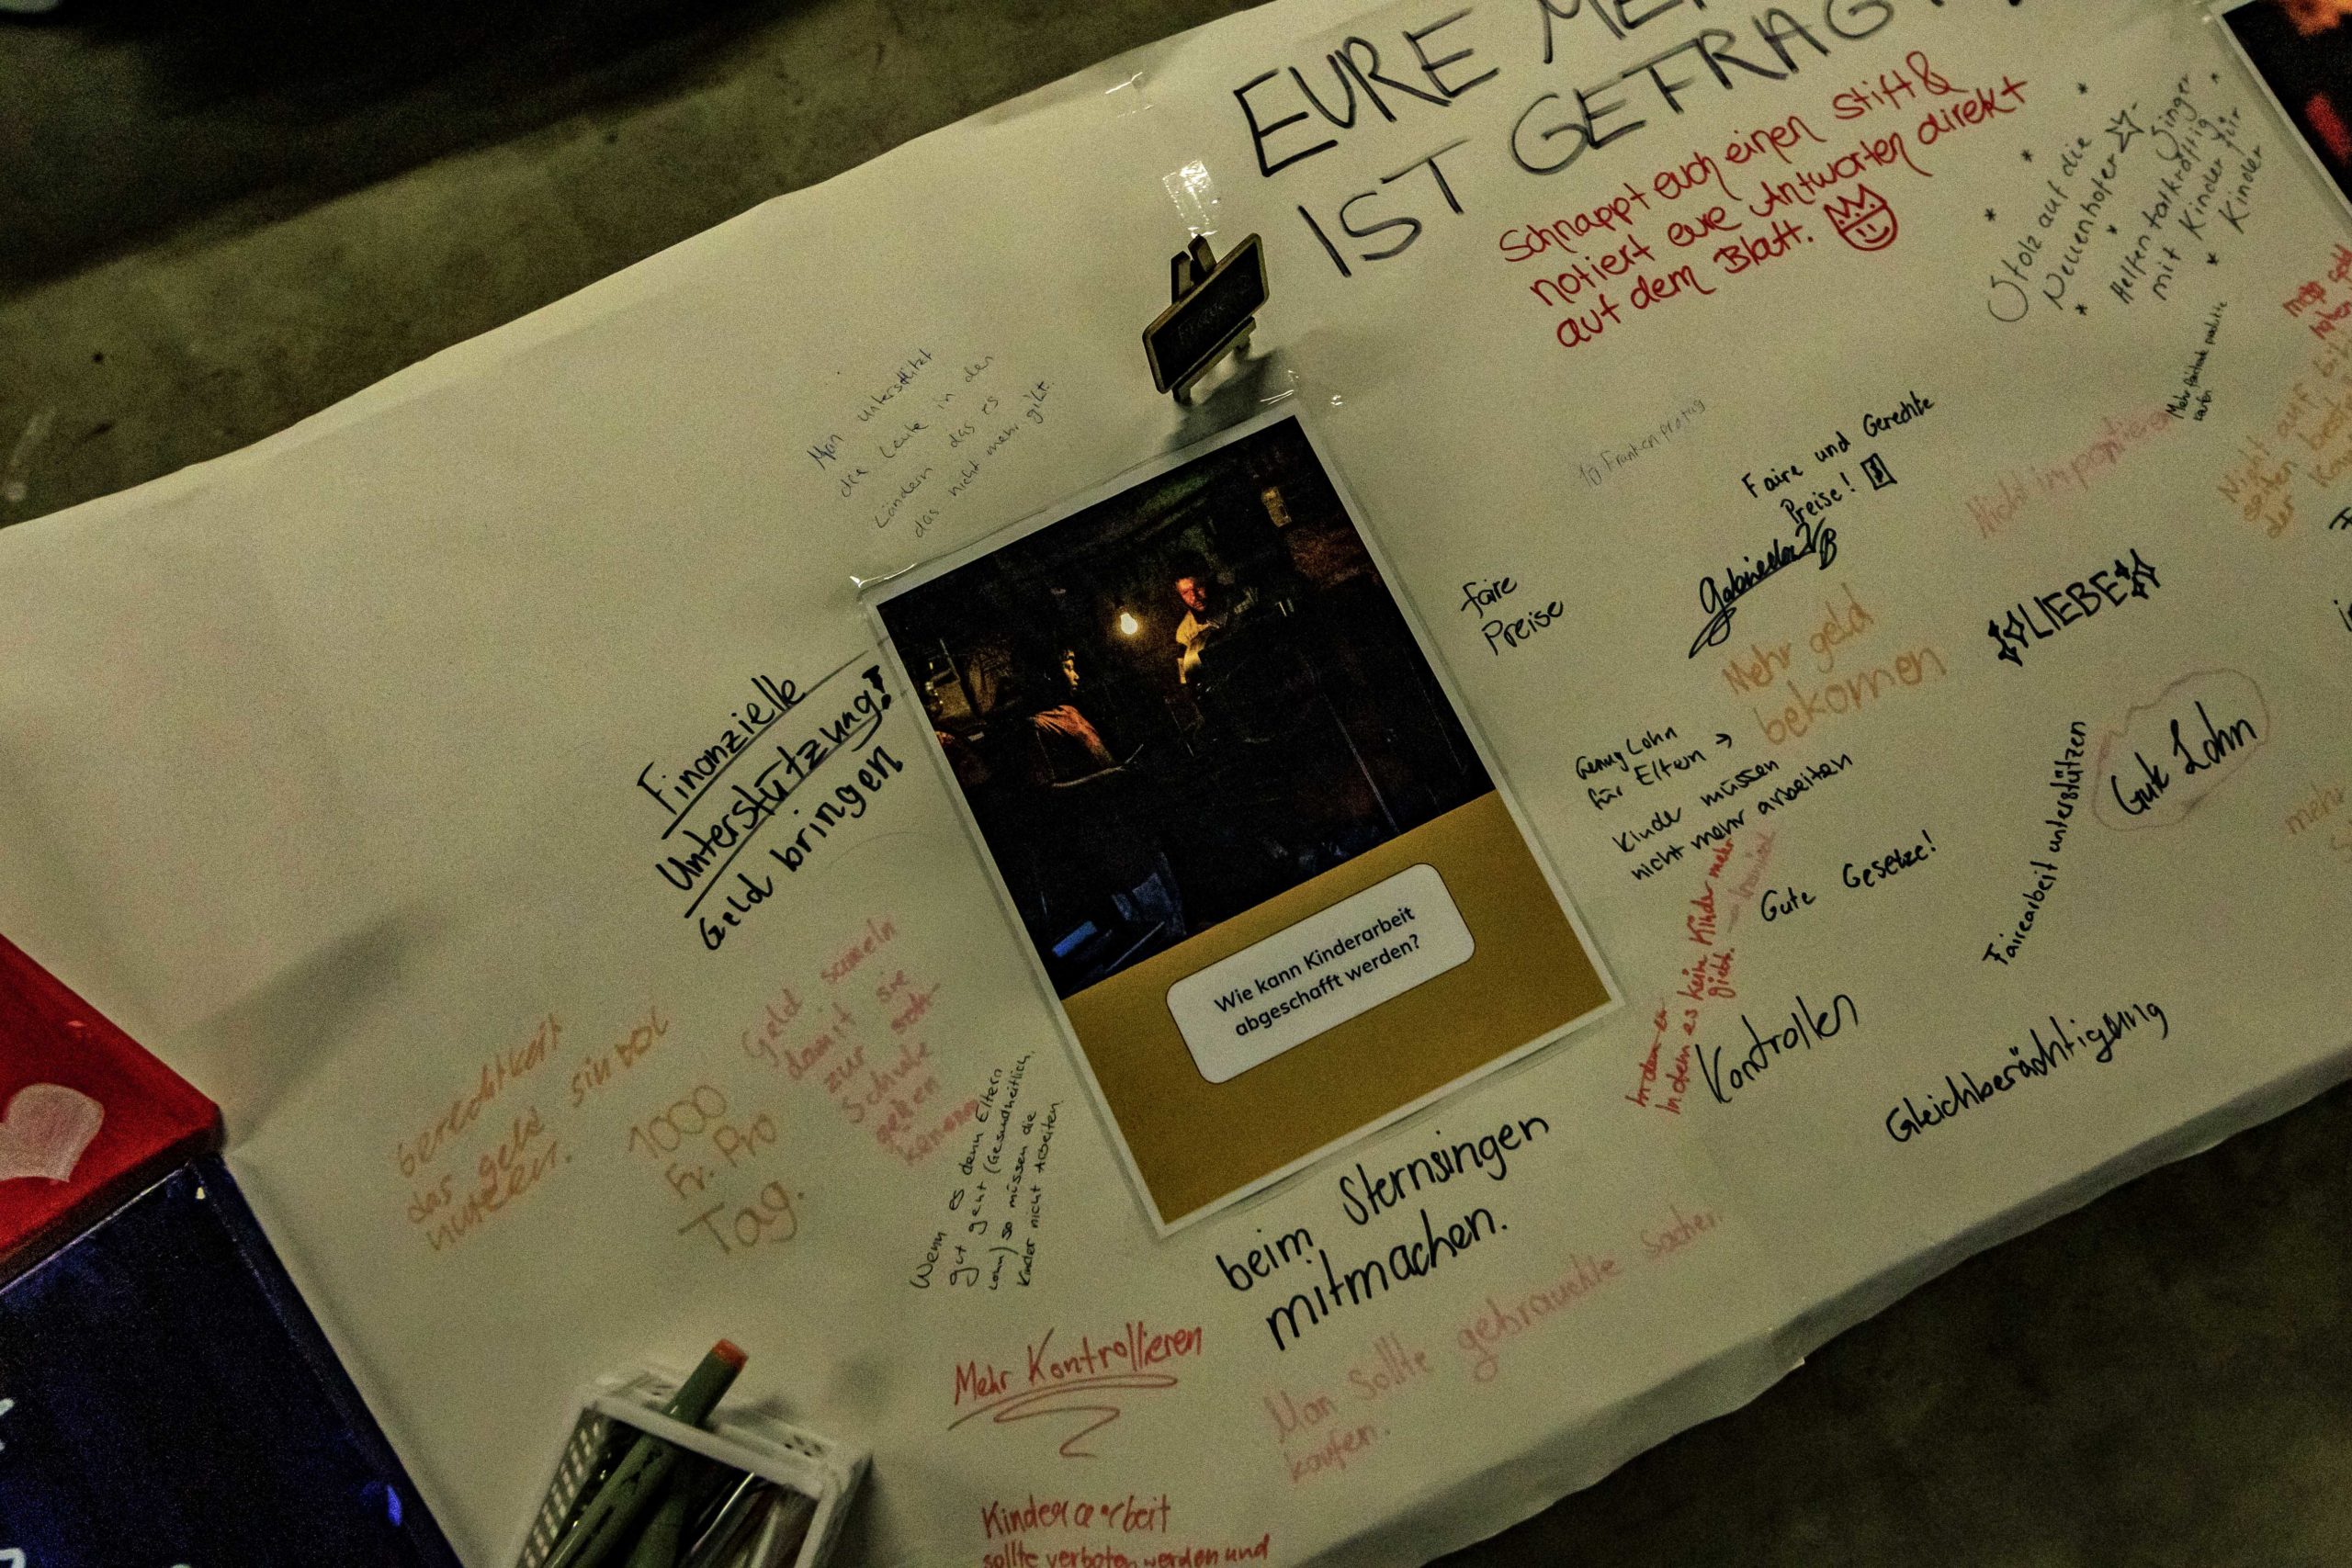 EURE
IST GEFRAGT
Schnappt euch einen Stift &
notiert eure Antworten direkt
auf dem Blatt.
Stolz auf die
Neuenhofer
Helfen tatkräftig
mit Kinder für
Kinder
Man unterstützt
die Leute in den
Ländern das es
das nicht mehr gibt.
10 Franken pro Tag
Faire und Gerechte
Preise!
faire
Preise
Nicht importieren
LIEBE
Mehr geld
bekomen
Genug Lohn
für Eltern →
Kinder müssen
nicht mehr arbeiten
Gute Gesetze!
Fairearbeit unterstützen
Gute Lohn
Indem es keine Kinder mehr
giebt.
Kontrollen
Gleichberächtigung
Finanzielle
Unterstützung!
Geld bringen
Wie kann Kinderarbeit
abgeschafft werden?
das geld sinvol
nutzen.
1000
Fr. Pro
Tag.
Geld sameln
damit sie
zur
Schule
gehen
Wenn es denn Eltern
gut geht (Gesundheitlich,
Lohn) so müssen die
Kinder nicht Arbeiten.
beim Sternsingen
mitmachen.
Man sollte gebrauchte Sachen
kaufen.
Mehr Kontrollieren
Kinderarbeit
sollte verboten werden und